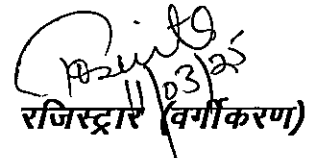 11/03/25
रजिस्ट्रार (वर्गीकरण)